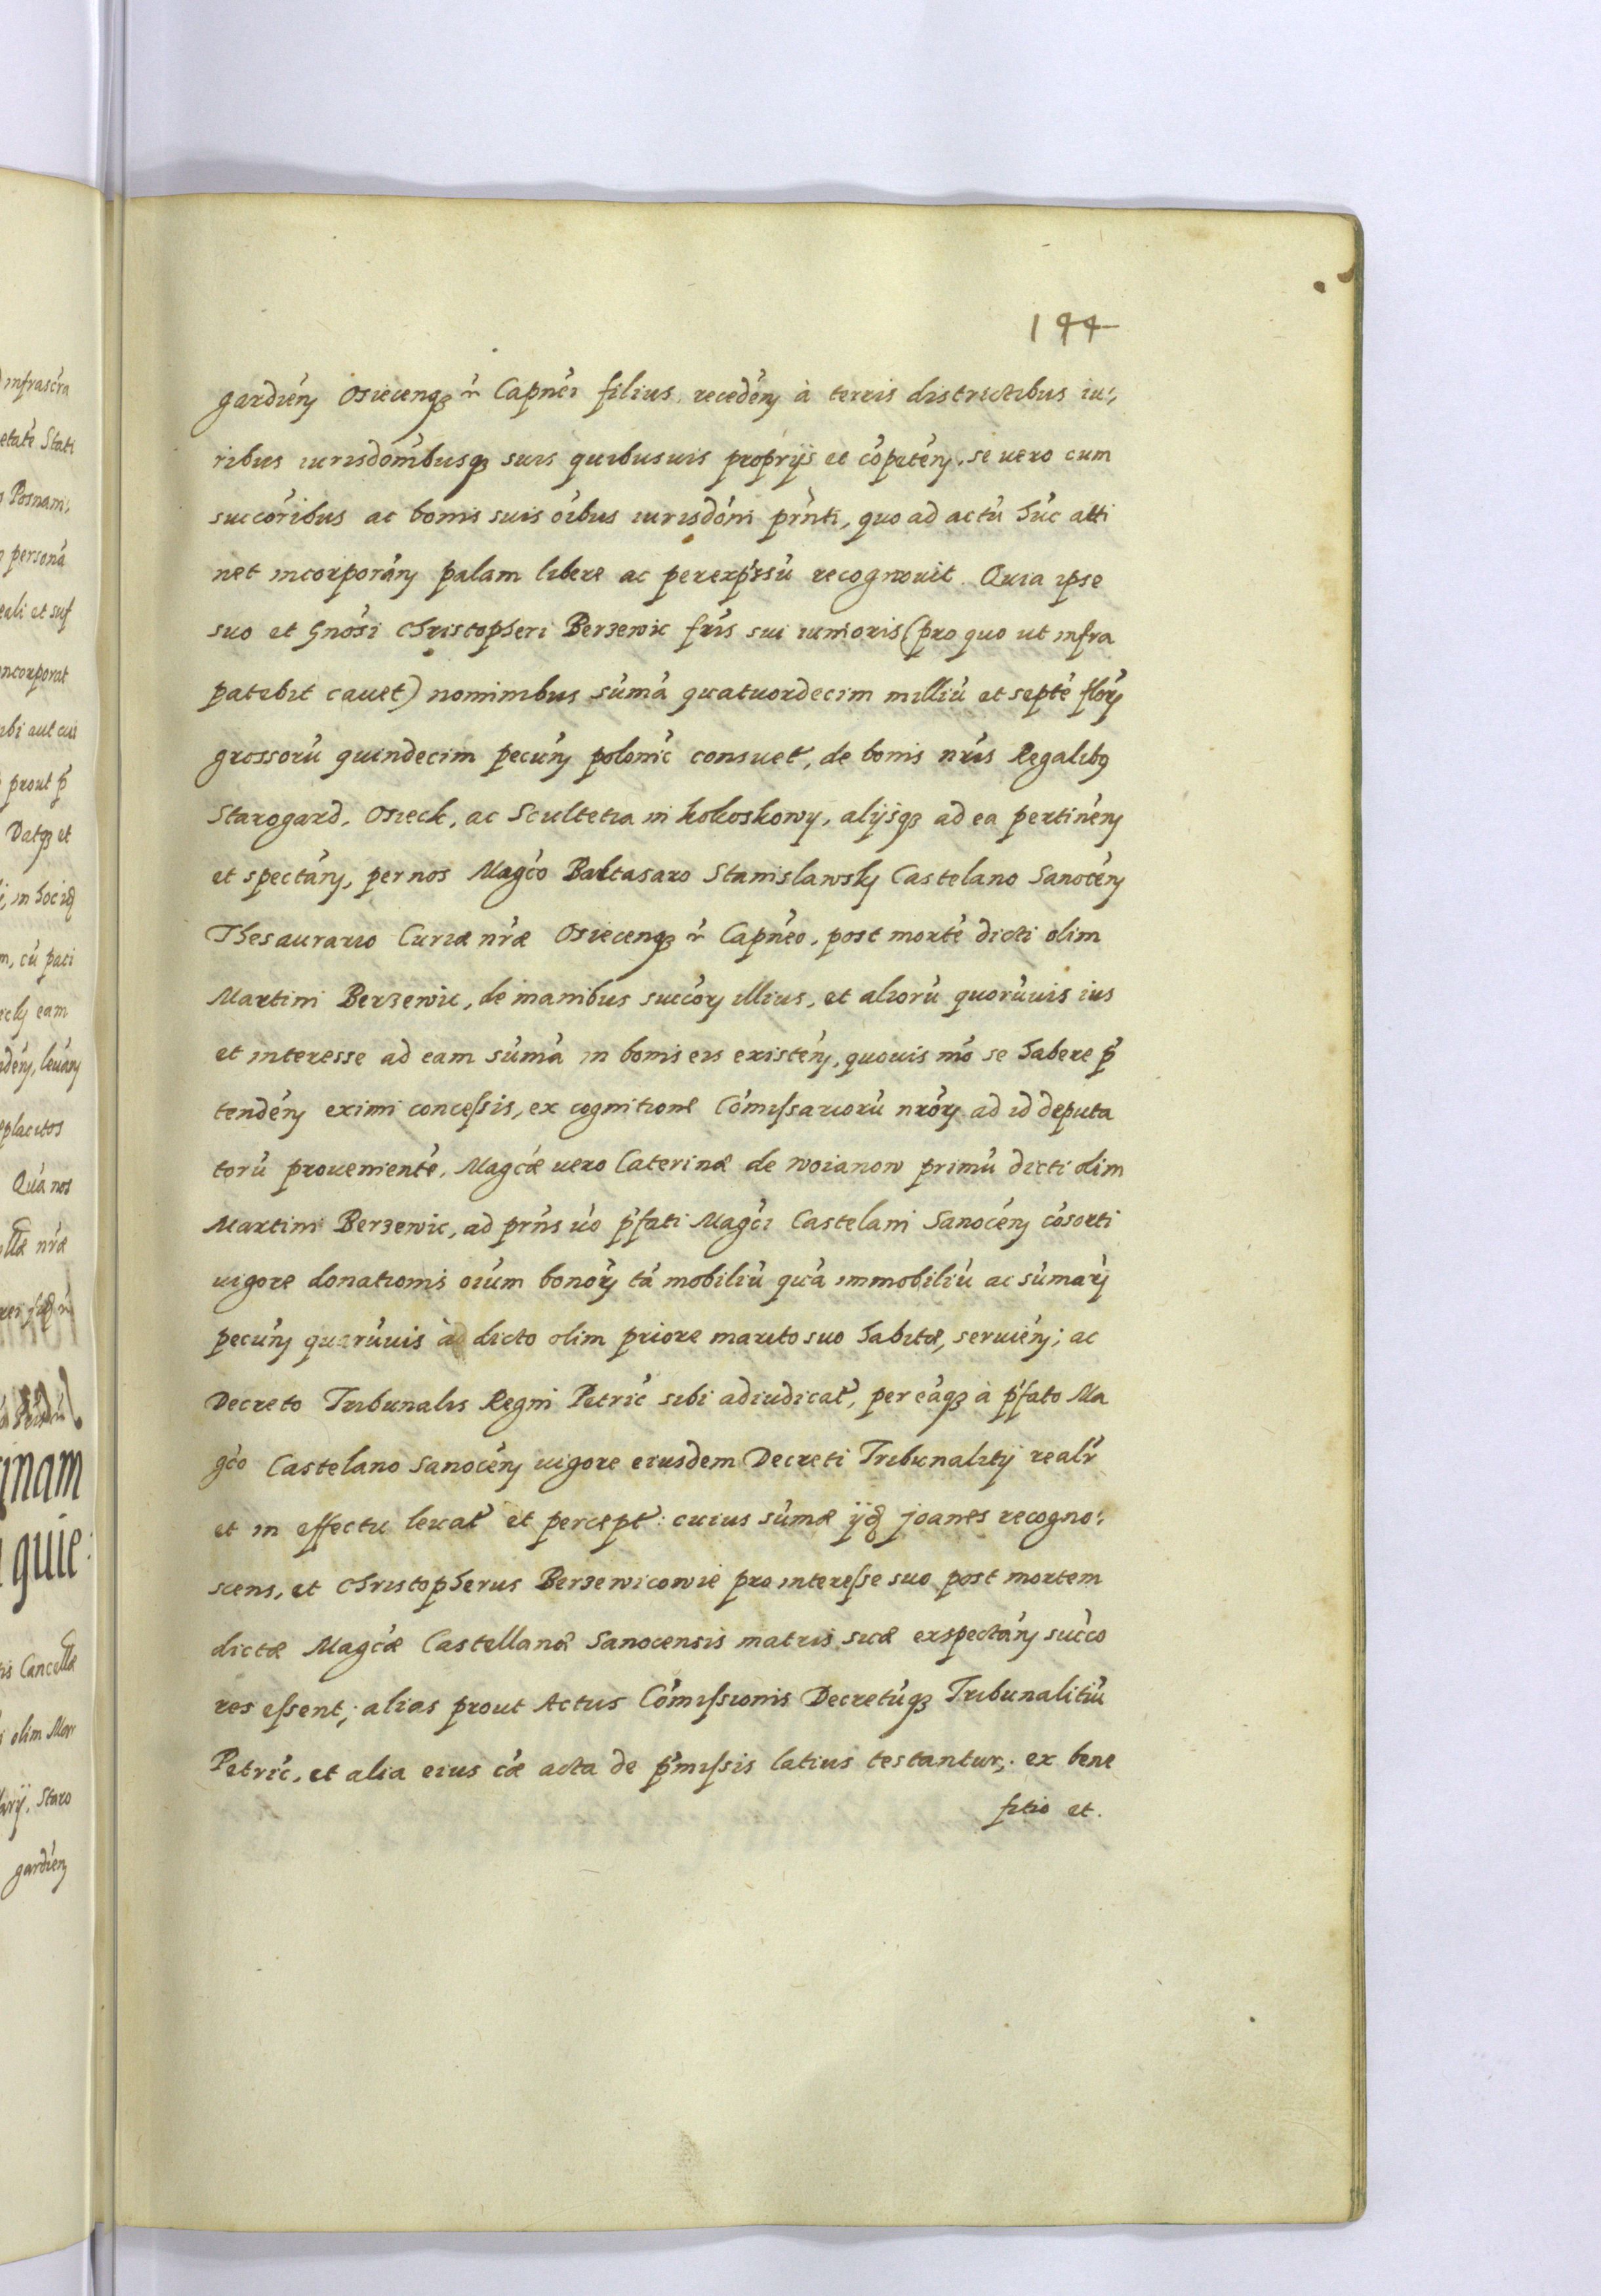 infrascra
etate Stati
Posnani,
persona
eali et suf
incorporat
ibi aut cui
prout p
Datq3 et
in hoc
m, cu paci
eam
leuan
placitos
Qua nos
nrae
inam
quie
Cancellae
olim Mar
Staro
gardien
144
gardien Osiecenq3 r Capnei filius recedén à terris districtibus iu:,
ribus iurisdómbusq3 suis quibusuis proprijs et cópetén, se uero cum
succóribus ac bonis suis óibus iurisdóni prnti, quo ad actú húc atti
net incorporán palam libere ac perexprsú recognouit. Quia ipse
suo et Gnósi Christopheri Berzewic fris sui iunioris (pro quo ut infra
patebit cauet) nominibus súmá quatuordecim milliú et septé flor
grossorú quindecim pecún polonic consuet, de bonis nris Regalib9
Starogard, Osieck, ac Scultetia in kokoskowy, alijsq3 ad ea pertinén
et spectán, per nos Magco Baltasaro Stanislawsky Castelano Sanocén
Thesaurario Curiae nrae Osiecenq3 r Capneo, post morté dicti olim
Martini Berzewic, de manibus succor illius, et aliorú quorúuis ius
et interesse ad eam súmá in bonis eis existén, quouis mó se habere p
tendén eximi concessis, ex cognitione Cómissariorú nror ad id deputa
torú proueniente, Magcae uero Caterinae de Woianow primú dicti olim
Martini Berzewic, ad prns úo pfati Magci Castelani Sanocén cósorti
uigore donationis oium bonor tá mobiliú quá immobiliú ac súmar
pecún quarúuis ad dicto olim priore marito suo habitae, seruién; ac
Decreto Tribunalis Regni Petric sibi adiudicat, per eáq3 à pfato Ma
gco Castelano Sanocén uigore eiusdem Decreti Tribunalitij realr
et in effectu leuat et percept: cuius súmae ijd Joanes recogno:,
scens, et Christopherus Berzewicowie pro interesse suo post mortem
dictae Magcae Castellanae Sanocensis matris suae exspectán succo
res essent; alias prout Actus Cómissionis Decretúq3 Tribunalitiú
Petric, et alia eius cae acta de pmissis latius testantur; ex bene
fitio et.